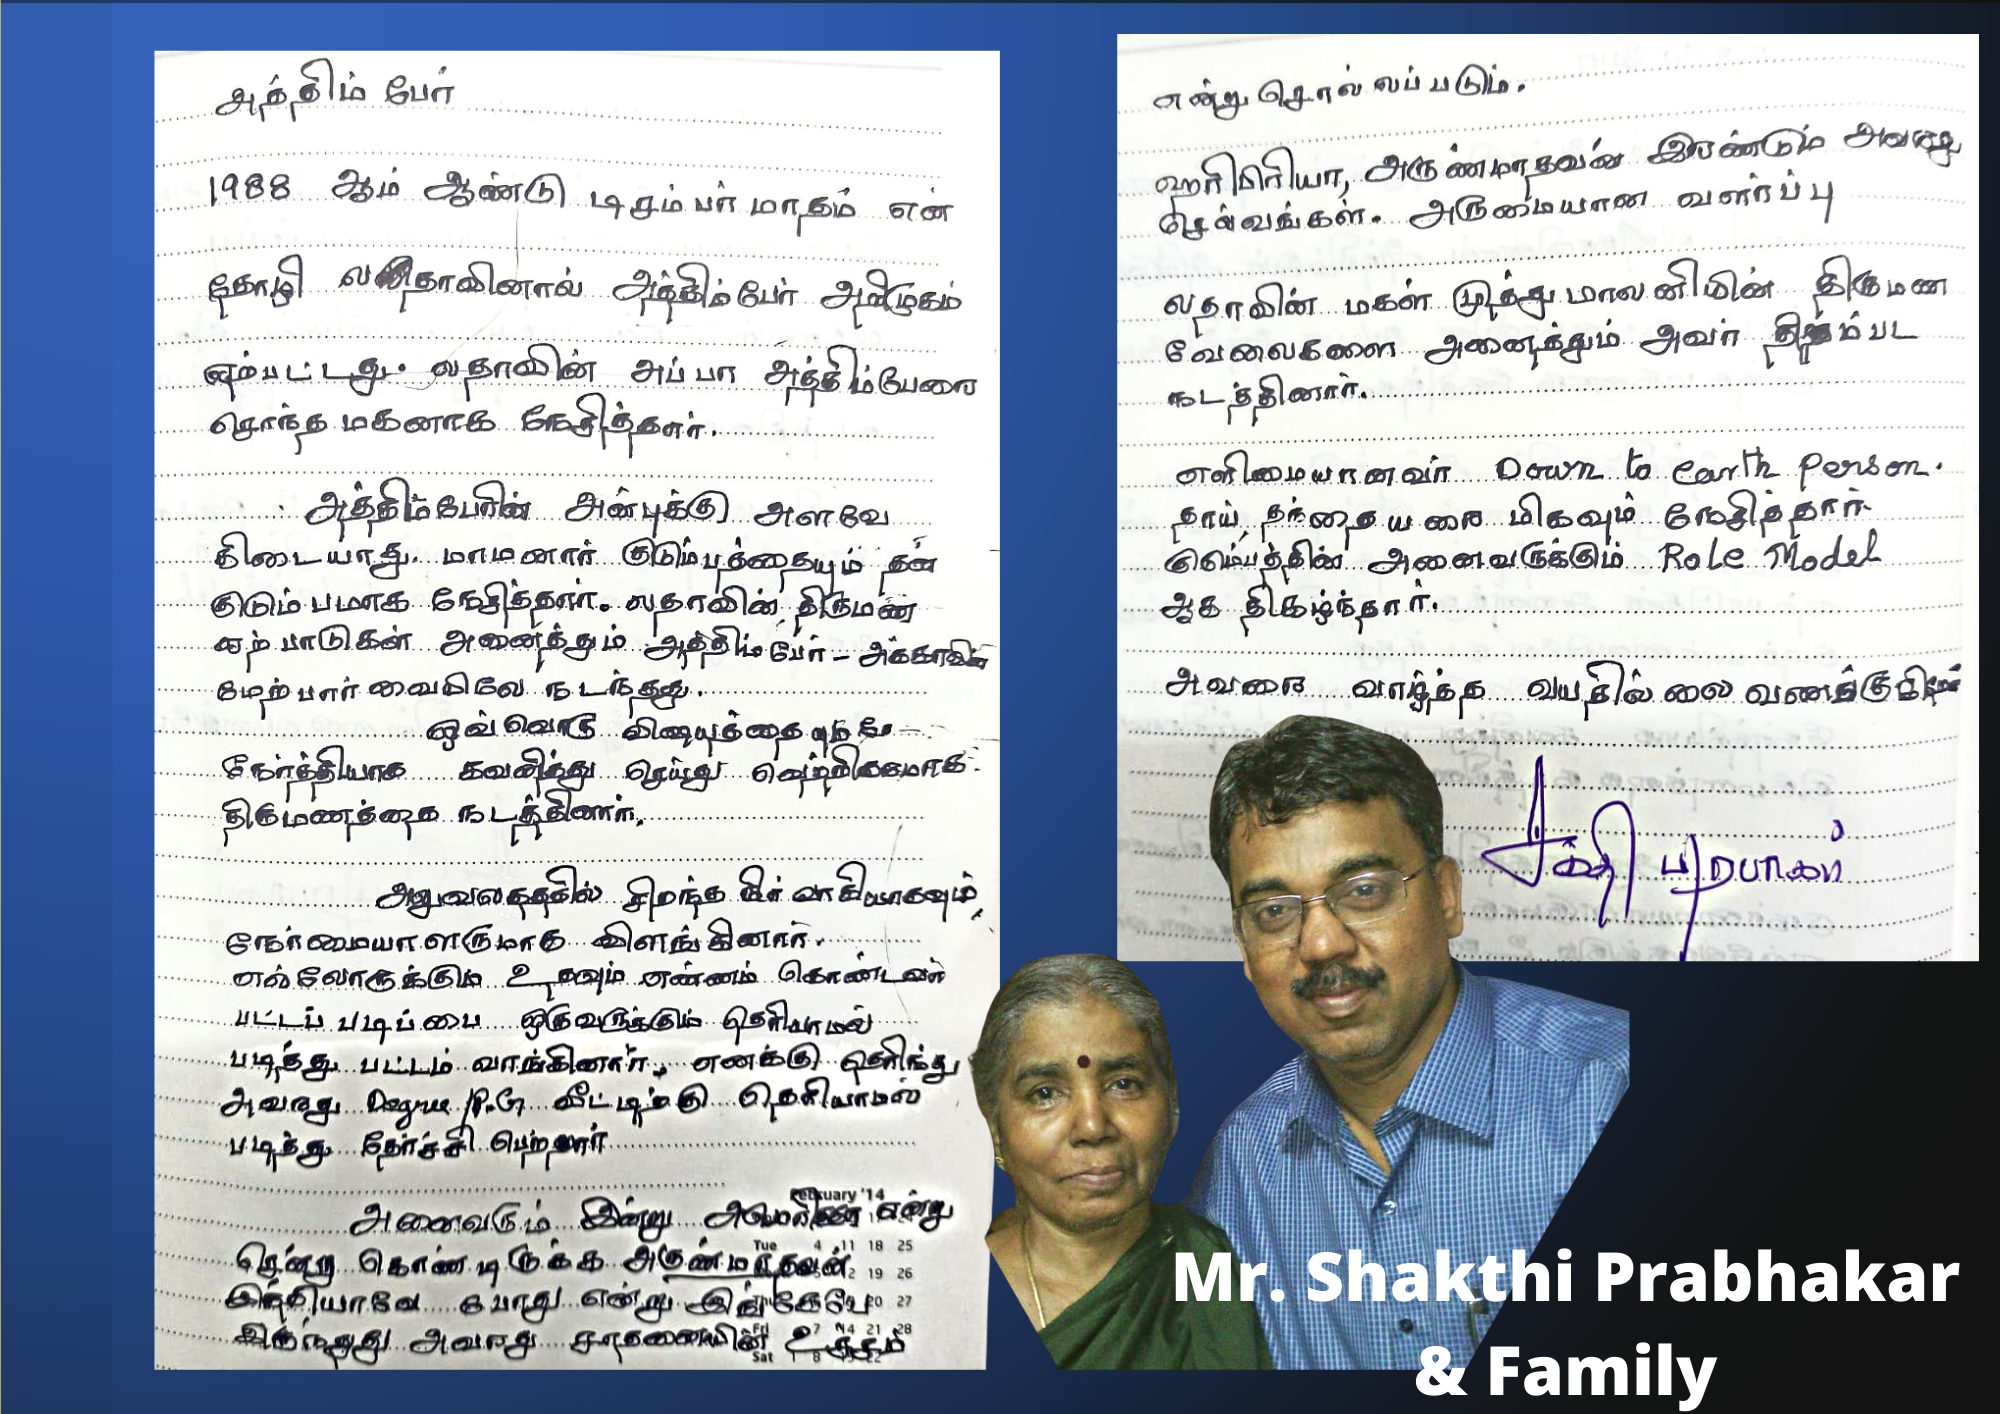 அத்திம் பேர்
1988 ஆம் ஆண்டு டிசம்பர் மாதம் என்
தோழி லதாவினால் அத்திம்பேர் அறிமுகம்
ஏற்பட்டது. லதாவின் அப்பா அத்திம்பேரை
சொந்த மகனாக நேசித்தார்.
அத்திம்பேரின் அன்புக்கு அளவே
கிடையாது. மாமனார் குடும்பத்தையும் தன்
குடும்பமாக நேசித்தார். லதாவின் திருமண
ஏற்பாடுகள் அனைத்தும் அத்திம்பேர் - அக்காவின்
மேற்பார்வையிலே நடந்தது.
ஒவ்வொரு விஷயத்தையுமே
நேர்த்தியாக கவனித்து செய்து வெற்றிகரமாக
திருமணத்தை நடத்தினார்.
அலுவலகத்தில் சிறந்த நிர்வாகியாகவும்,
நேர்மையாளருமாக விளங்கினார்.
எல்லோருக்கும் உதவும் எண்ணம் கொண்டவர்
பட்டப் படிப்பை ஒருவருக்கும் தெரியாமல்
படித்து பட்டம் வாங்கினார். எனக்கு தெரிந்து
அவரது Degree / P.G வீட்டிற்கு தெரியாமல்
படித்து தேர்ச்சி பெற்றார்
February '14
அனைவரும் இன்று அமெரிக்கா என்று
Tue 4 11 18 25
சென்று கொண்டிருக்க அருண்மாதவன்
19 26
இந்தியாவே போதும் என்று இங்கேயே
20 27
இருந்தது அவரது சாதனையின் உச்சம்
Fri 7 14 21 28
Sat 1 8 22
என்று சொல்லப்படும்.
ஹரிப்ரியா, அருண்மாதவன் இரண்டும் அவரது
செல்வங்கள். அருமையான வளர்ப்பு
லதாவின் மகள் முத்துமாலனியின் திருமண
வேலைகளை அனைத்தும் அவர் திறம்பட
நடத்தினார்.
எளிமையானவர் Down to earth Person.
தாய் தந்தையரை மிகவும் நேசித்தார்.
குடும்பத்தின் அனைவருக்கும் Role Model
ஆக திகழ்ந்தார்.
அவரை வாழ்த்த வயதில்லை வணக்குறேன்
சக்தி பிரபாகர்
Mr. Shakthi Prabhakar
& Family